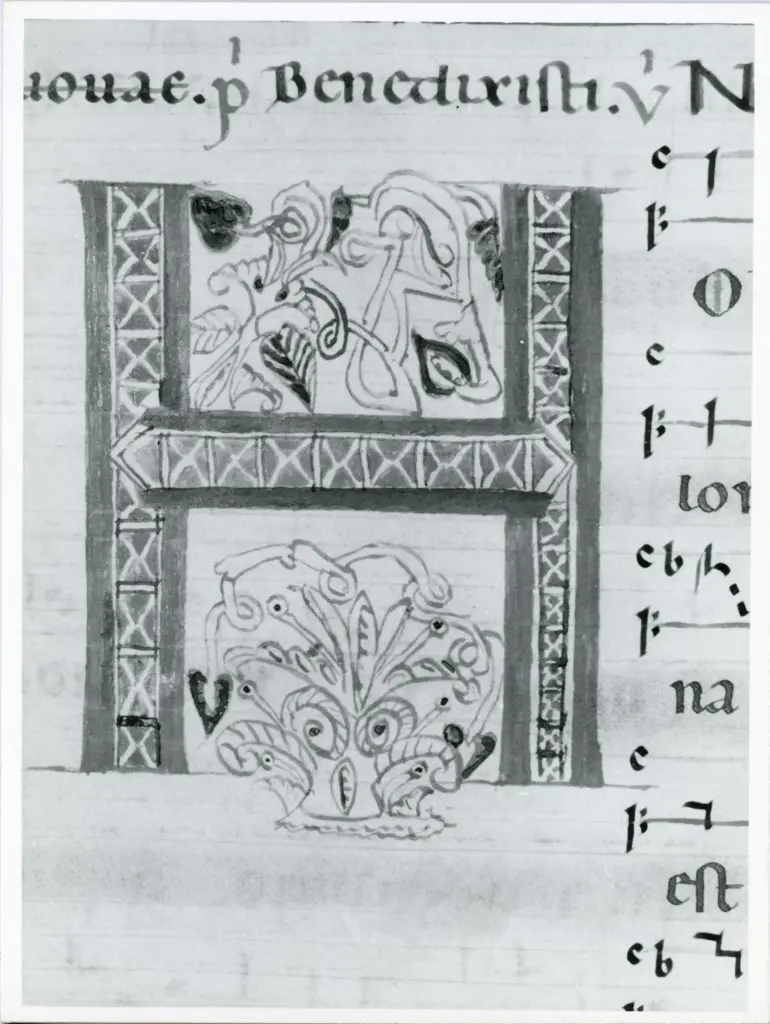 uouae. p Benedixisti. v N
c
H
f
O
c
f
lor
c b
f
na
c
f
est
c b